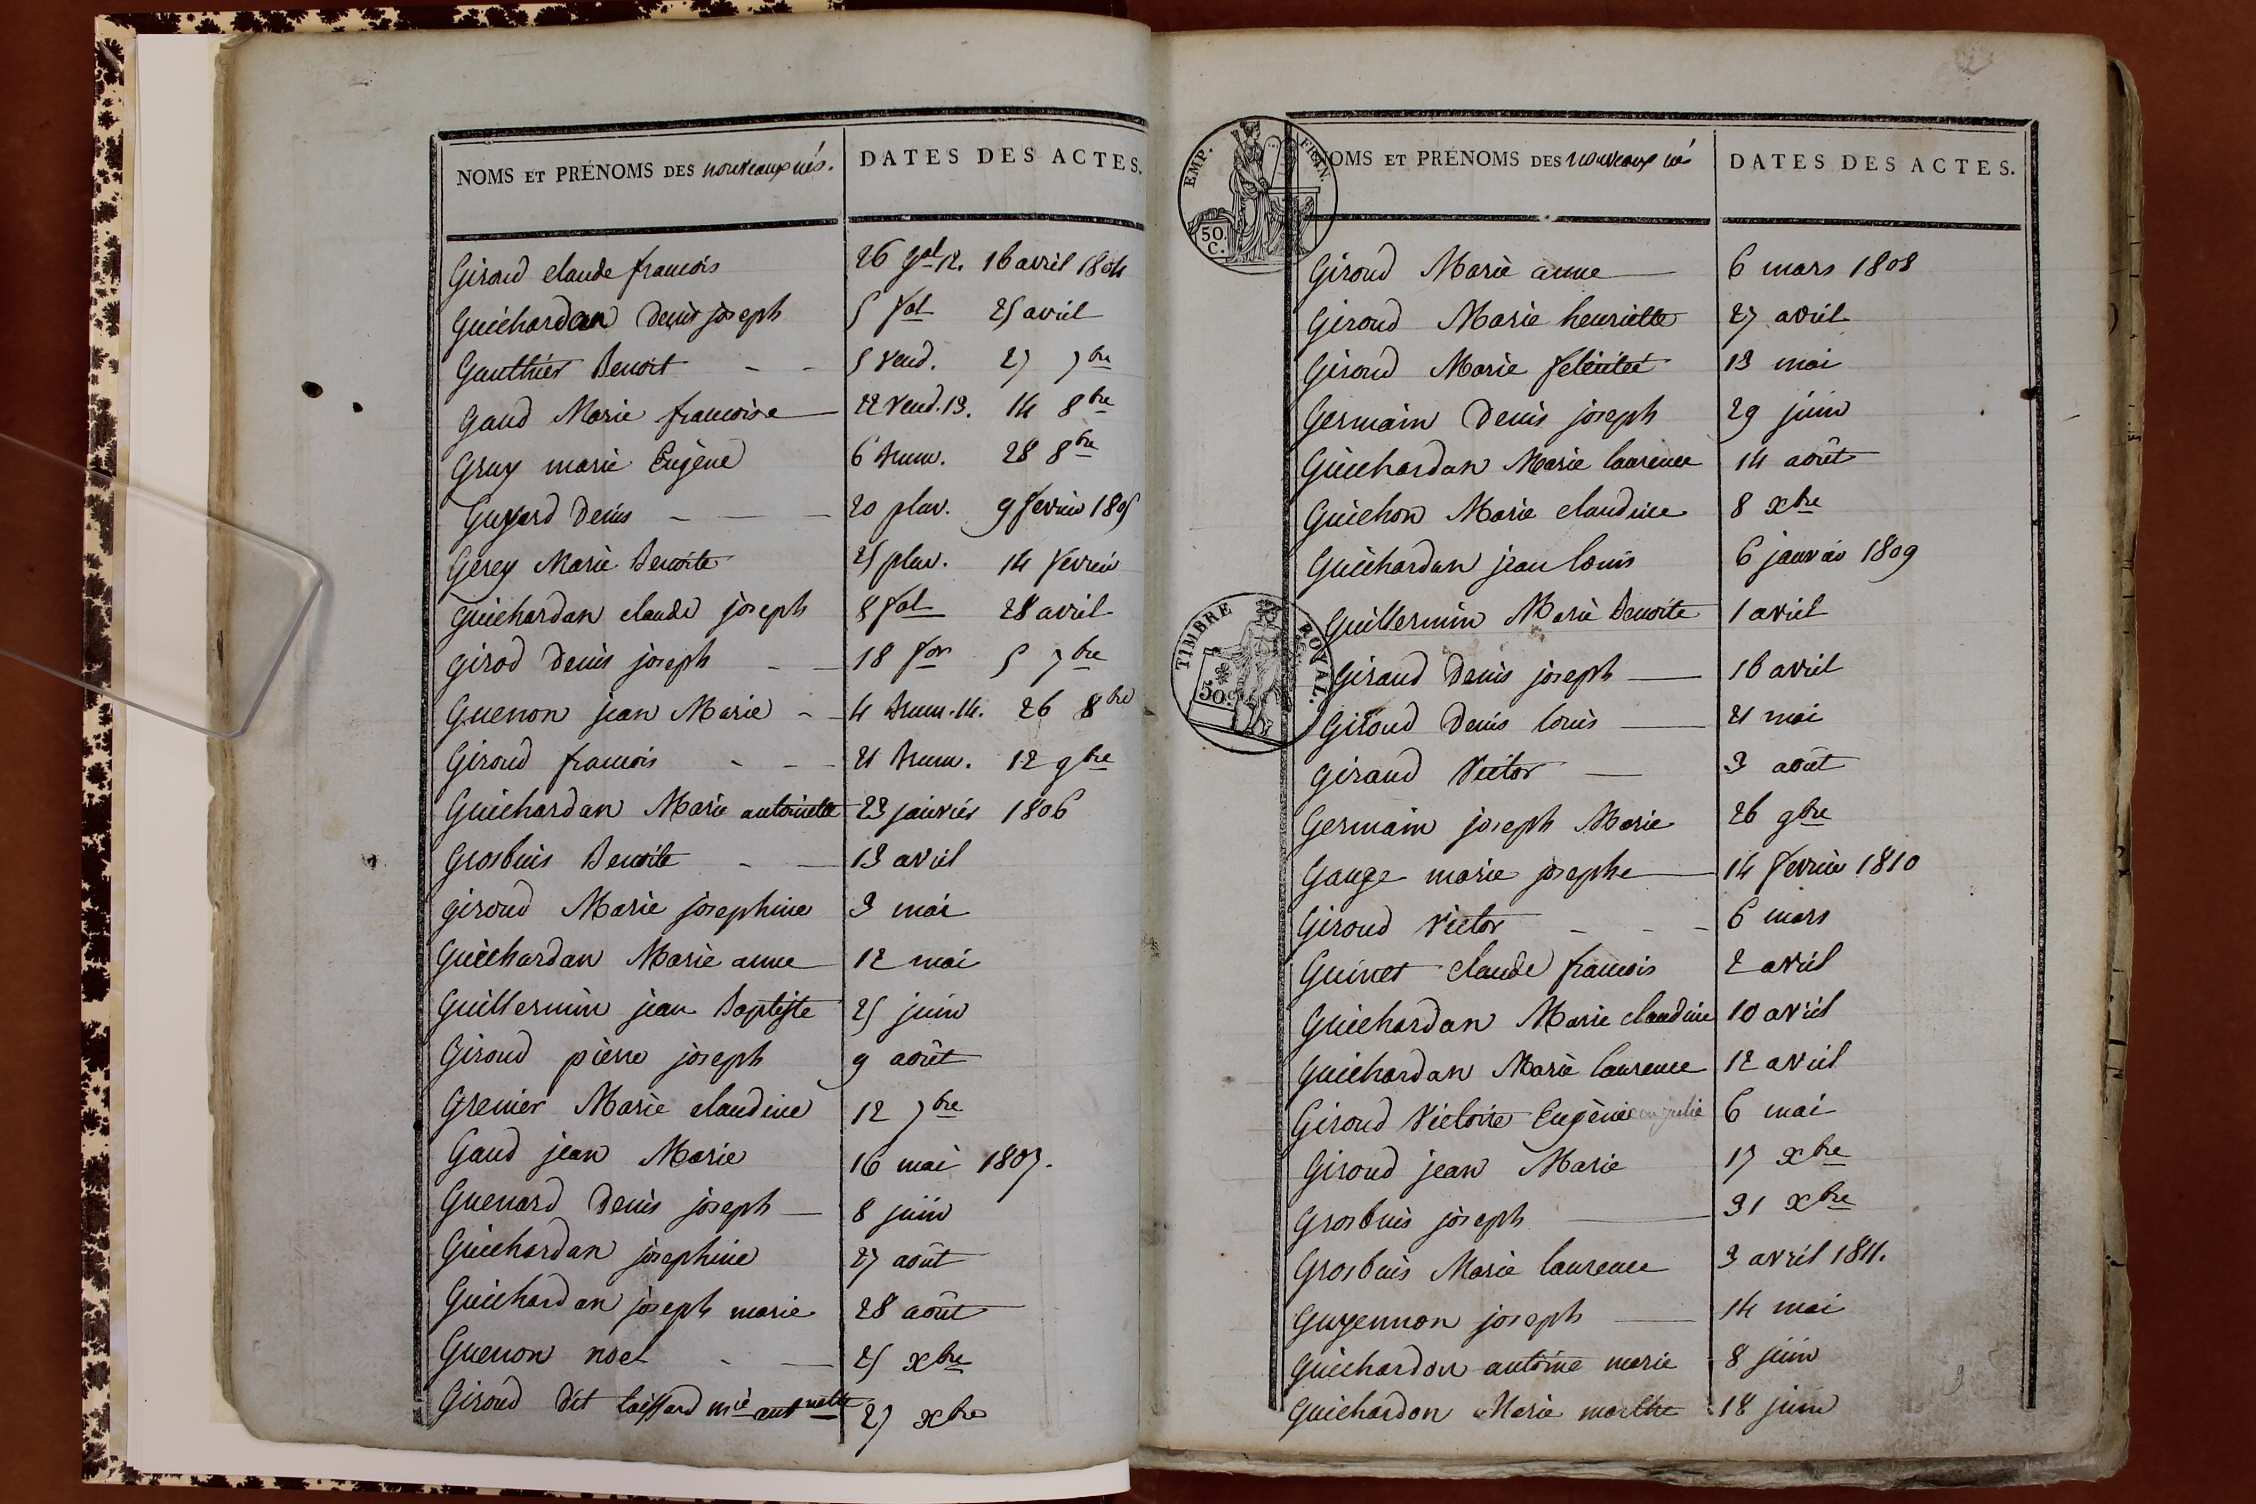 NOMS ET PRÉNOMS DES nouveaux nés. DATES DES ACTES.
Giroud claude francois 26 gal 12. 16 avril 1804
Guichardan denis joseph 5 fal 25 avril
Gauthier Benoit - - 5 vend. 27 7bre
Gaud Marie francoise 22 vend. 13. 14 8bre
Gruy marie Eugène 6 brum. 28 8bre
Guyard denis - - - 20 pluv. 9 fevrier 1805
Gerey Marie Benoite 25 pluv. 14 fevrier
Guichardan claude joseph 8 fal 28 avril
Girod denis joseph - - 18 for 5 7bre
Guenon jean Marie - - 4 brum. 14. 26 8bre
Giroud francois - - - 21 brum. 12 9bre
Guichardan Marie antoinette 23 janvier 1806
Grosbuis Benoite - - 13 avril
Giroud Marie josephine 3 mai
Guichardan Marie anne 12 mai
Guillermin jean Baptiste 25 juin
Giroud pierre joseph 9 août
Grenier Marie claudine 12 7bre
Gaud jean Marie 16 mai 1807.
Guenard Denis joseph 8 juin
Guichardan josephine 27 août
Guichardan joseph marie 28 août
Guenon noel - - 25 xbre
Giroud dit mie antnette 27 xbre
EMP. FRAN.
50 C.
NOMS ET PRÉNOMS DES nouveaux nés DATES DES ACTES.
Giroud Marie anne 6 mars 1808
Giroud Marie henriette 27 avril
Giroud Marie felicitée 13 mai
Germain Denis joseph 29 juin
Guichardan Marie laurence 14 août
Guichon Marie claudine 8 xbre
Guichardan jean louis 6 janvier 1809
TIMBRE ROYAL.
50
Guillermin Marie Benoite 1 avril
Giraud Denis joseph 16 avril
Giroud Denis louis 21 mai
Giraud Victor 3 août
Germain joseph Marie 26 9bre
Gauge marie josephe 14 fevrier 1810
Giroud Victor - - - 6 mars
Guinet claude francois 2 avril
Guichardan Marie claudine 10 avril
Guichardan Marie laurence 12 avril
Giroud Victoire Eugènie ou julie 6 mai
Giroud jean Marie 17 xbre
Grosbuis joseph 31 xbre
Grosbuis Marie laurence 3 avril 1811.
Guyennon joseph 14 mai
Guichardon antoine marie 8 juin
Guichardon Marie marthe 18 juin